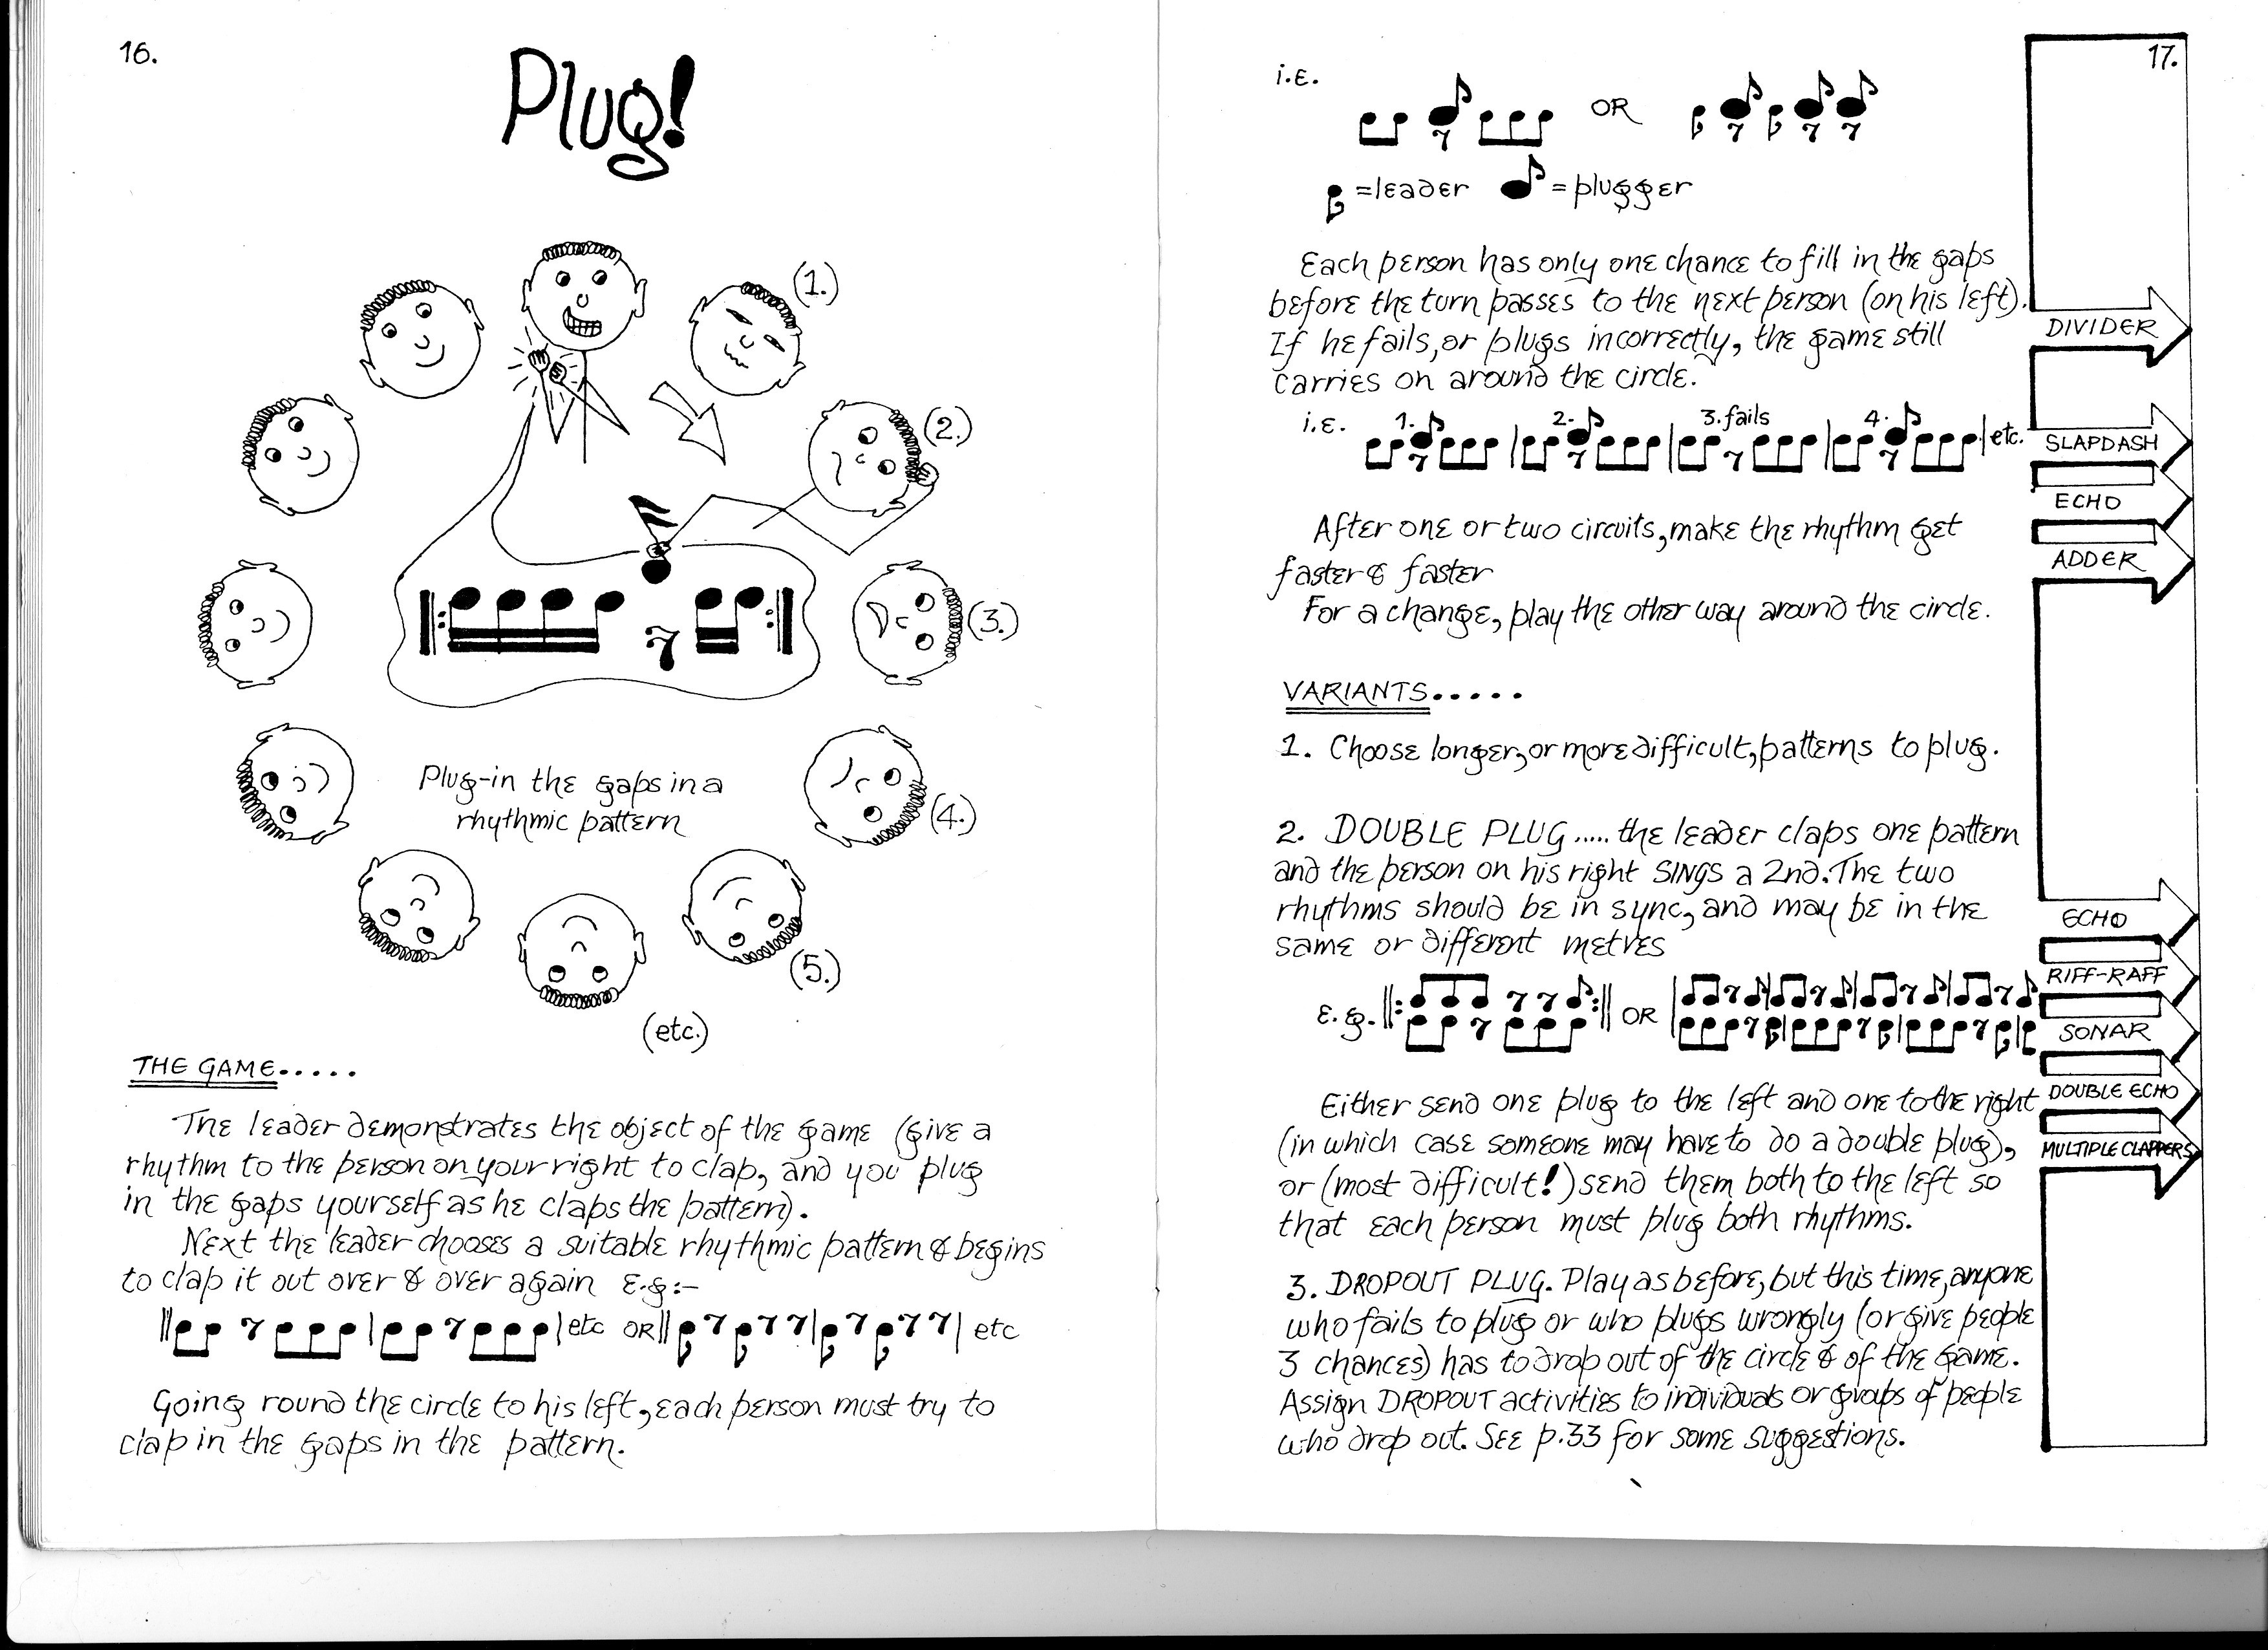 16.
Plug!
(1.)
(2.)
(3.)
(4.)
(5.)
(etc.)
Plug-in the gaps in a
rhythmic pattern
THE GAME.....
The leader demonstrates the object of the game (give a
rhythm to the person on your right to clap, and you plug
in the gaps yourself as he claps the pattern).
Next the leader chooses a suitable rhythmic pattern & begins
to clap it out over & over again E.g:-
etc OR etc
Going round the circle to his left, each person must try to
clap in the gaps in the pattern.
17.
i.e.
OR
=leader =plugger
Each person has only one chance to fill in the gaps
before the turn passes to the next person (on his left).
If he fails, or plugs incorrectly, the game still
carries on around the circle.
i.e. 1. 2. 3. fails 4. etc.
After one or two circuits, make the rhythm get
faster & faster
For a change, play the other way around the circle.
VARIANTS.....
1. Choose longer, or more difficult, patterns to plug.
2. DOUBLE PLUG..... the leader claps one pattern
and the person on his right SINGS a 2nd. The two
rhythms should be in sync, and may be in the
same or different metres
E.g. OR
Either send one plug to the left and one to the right
(in which case someone may have to do a double plug),
or (most difficult!) send them both to the left so
that each person must plug both rhythms.
3. DROPOUT PLUG. Play as before, but this time, anyone
who fails to plug or who plugs wrongly (or give people
3 chances) has to drop out of the circle & of the game.
Assign DROPOUT activities to individuals or groups of people
who drop out. See p.33 for some suggestions.
DIVIDER
SLAPDASH
ECHO
ADDER
ECHO
RIFF-RAFF
SONAR
DOUBLE ECHO
MULTIPLE CLAPPERS